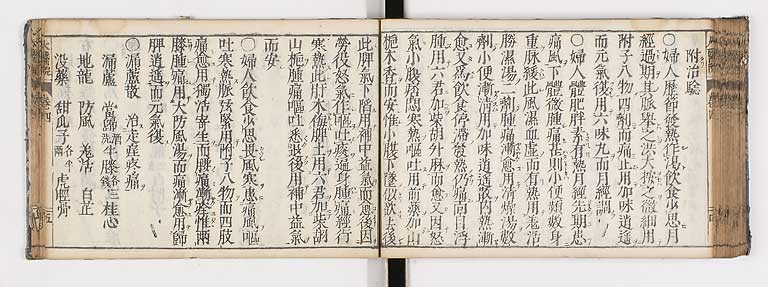 附治驗
○婦人歷節發熱作渴飲食少思月
經過期其脉舉之洪大按之微細用
附子八物四劑而痛止用加味逍遙
而元氣復用六味丸而月經調
○婦人體肥胖素有熱月經先期患
痛風下體微腫痛甚則小便頻數身
重脉緩此風濕血虛而有熱用羌活
勝濕湯二劑腫痛漸愈用清燥湯數
劑小便漸清用加味逍遙散內熱漸
愈又為飲食停滯發熱仍痛面目浮
腫用六君加柴胡升麻而愈又因怒
氣小腹脹悶寒熱嘔吐用前藥加山
梔木香而安惟小腹下墜似欲去後
此脾氣下陷用補中益氣而愈後因
勞役怒氣作嘔吐痰遍身腫痛經行
寒熱此肝木侮脾土用六君加柴胡
山梔腫痛嘔吐悉退後用補中益氣
而安
○婦人飲食少思畏風寒患痛風嘔
吐寒熱脉弦緊用附子八物而四肢
痛愈用獨活寄生而腰痛漸痊惟兩
膝腫痛用大防風湯而痛漸愈用歸
脾逍遙而元氣復
○漏蘆散 治走疰疼痛
漏蘆 當歸酒洗 牛膝各三錢 桂心
地龍 防風 羌活 白芷
沒藥 甜瓜子各半兩 虎脛骨